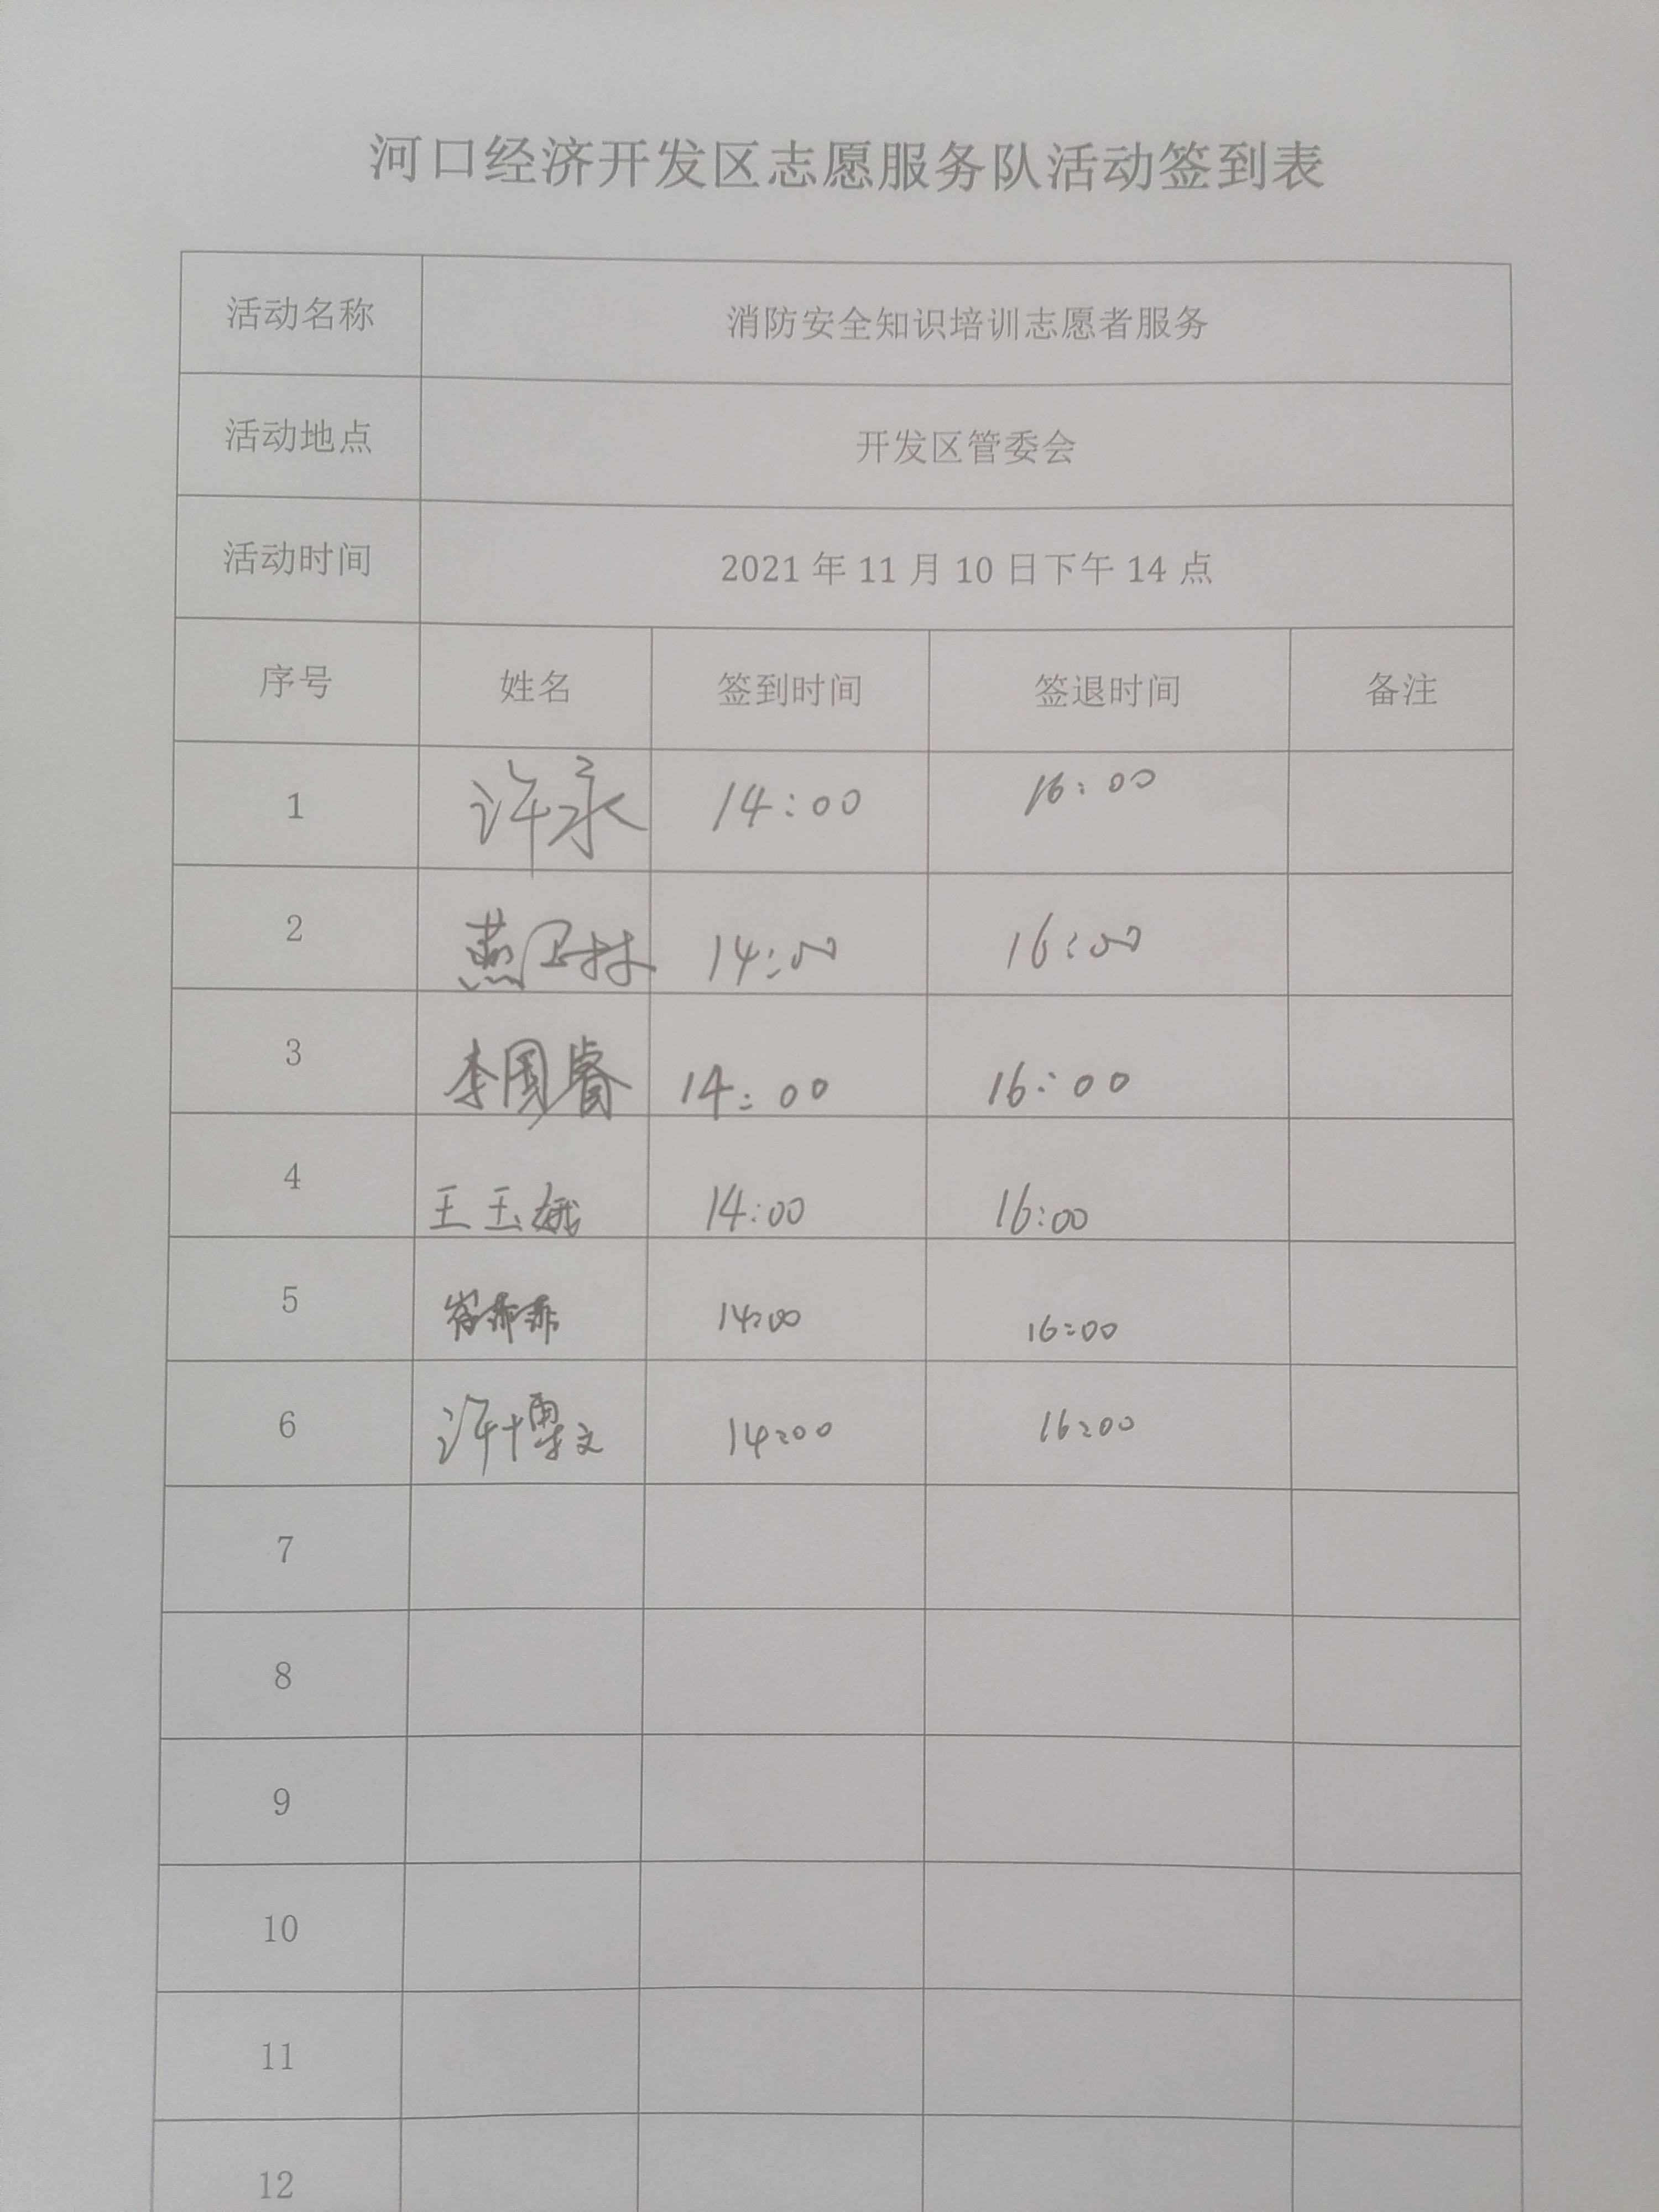 河口经济开发区志愿服务队活动签到表
活动名称 消防安全知识培训志愿者服务
活动地点 开发区管委会
活动时间 2021年11月10日下午14点
序号 姓名 签到时间 签退时间 备注
1 许永 14:00 16:00
2 燕卫林 14:00 16:00
3 李国睿 14:00 16:00
4 王玉娥 14:00 16:00
5 14:00 16:00
6 许博文 14:00 16:00
7
8
9
10
11
12